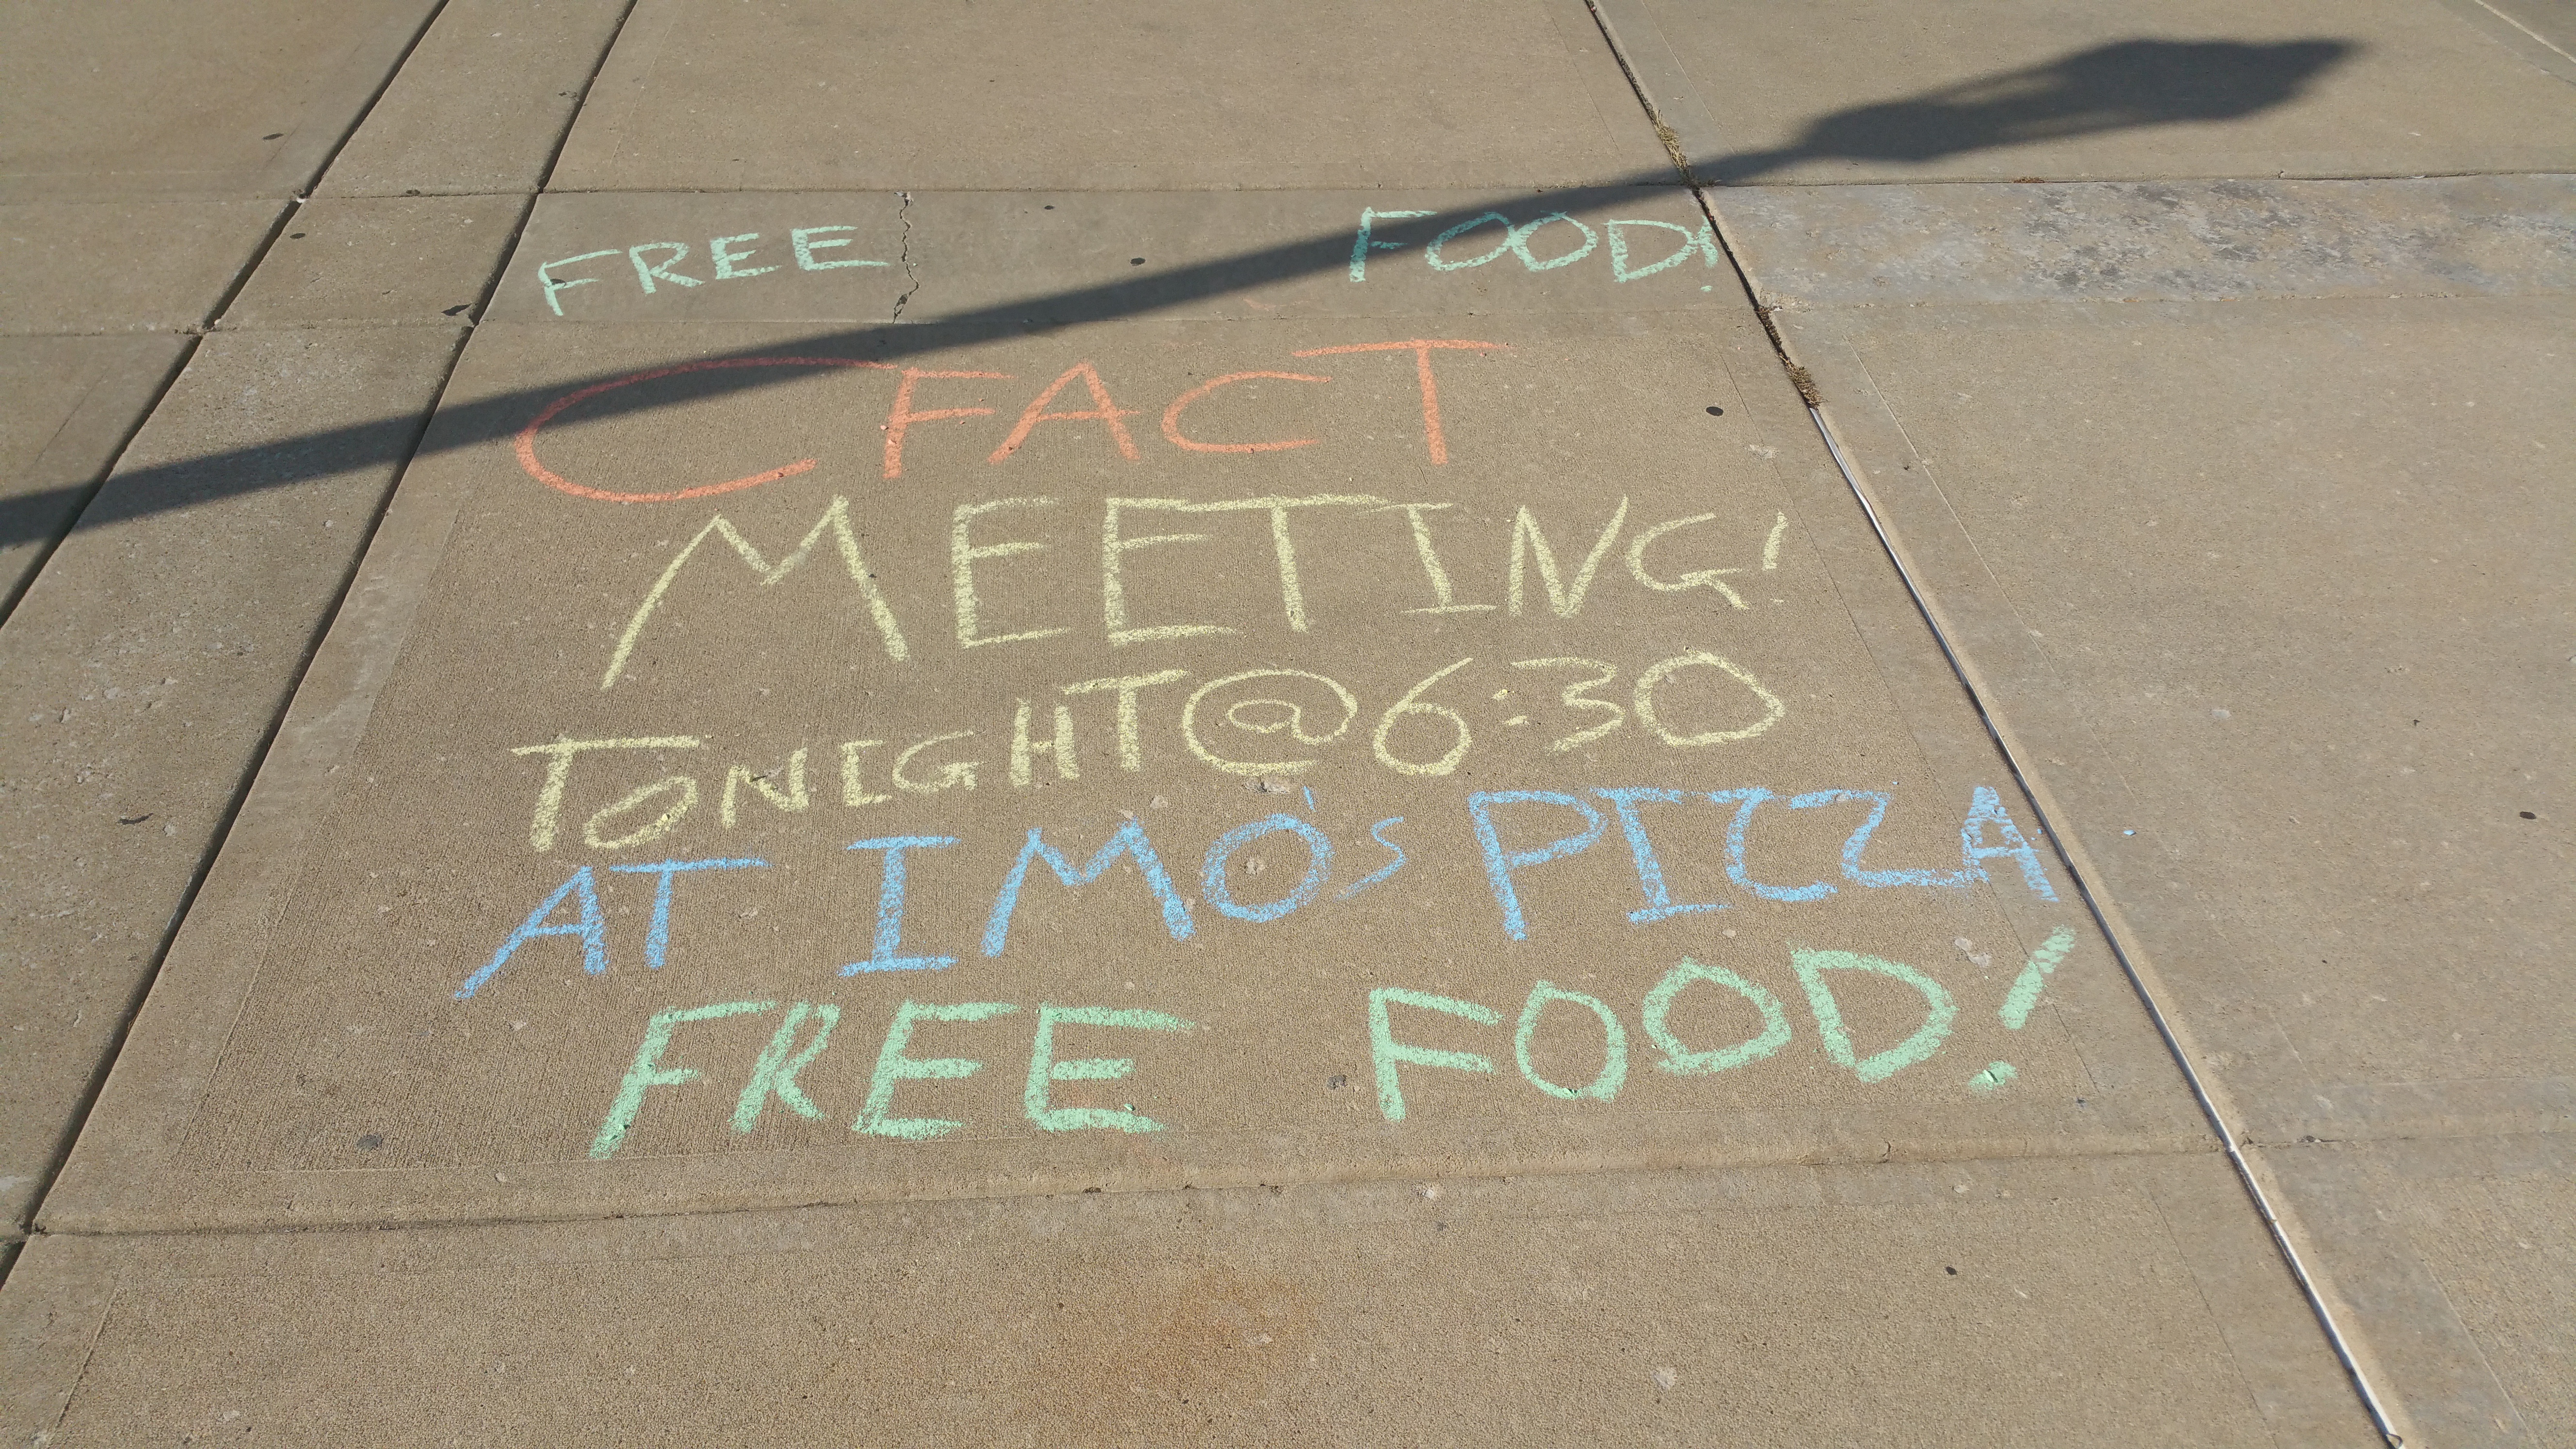 FREE FOOD!
CFACT
MEETING!
TONIGHT@6:30
AT IMO'S PIZZA
FREE FOOD!